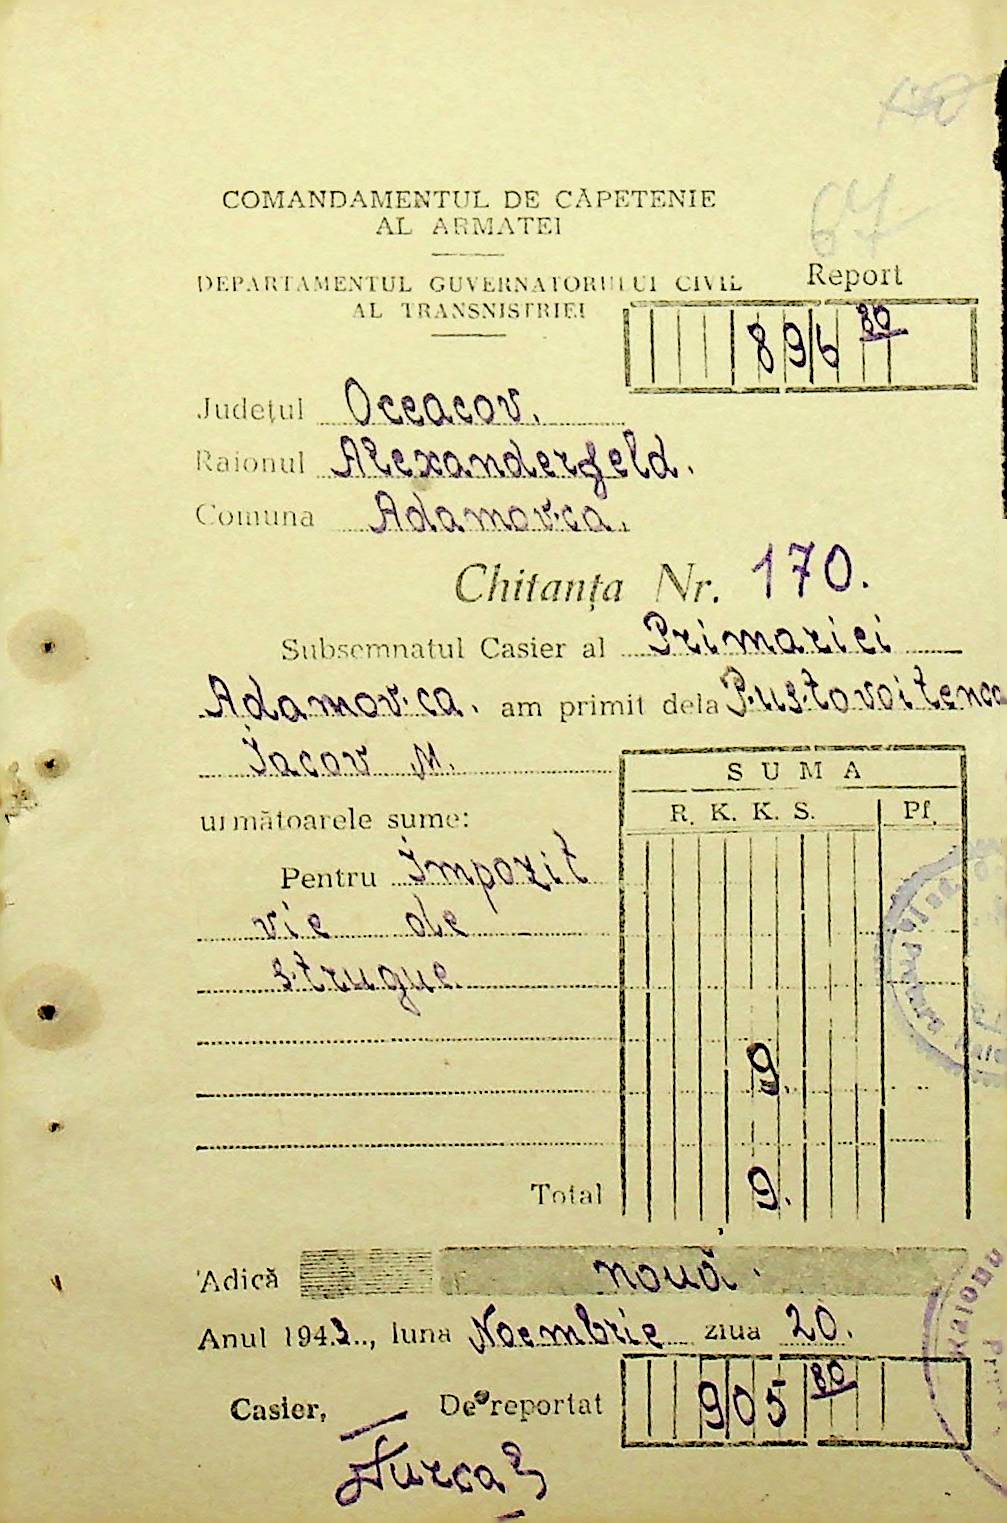 170
67
COMANDAMENTUL DE CĂPETENIE
AL ARMATEI
DEPARTAMENTUL GUVERNATORULUI CIVIL
AL TRANSNISTRIEI
Report
896 80
Județul Oceacov.
Raionul Alexanderfeld.
Comuna Adamovca.
Chitanța Nr. 170.
Subsemnatul Casier al Primariei
Adamovca. am primit dela Pustovoitenco
Iacov M.
următoarele sume:
SUMA
R. K. K. S. Pf.
Pentru Impozit
vie de
strugue.
9.
Total 9.
Adică nouă.
Anul 1943.., luna Noembrie ziua 20.
Casier, De reportat 905 80